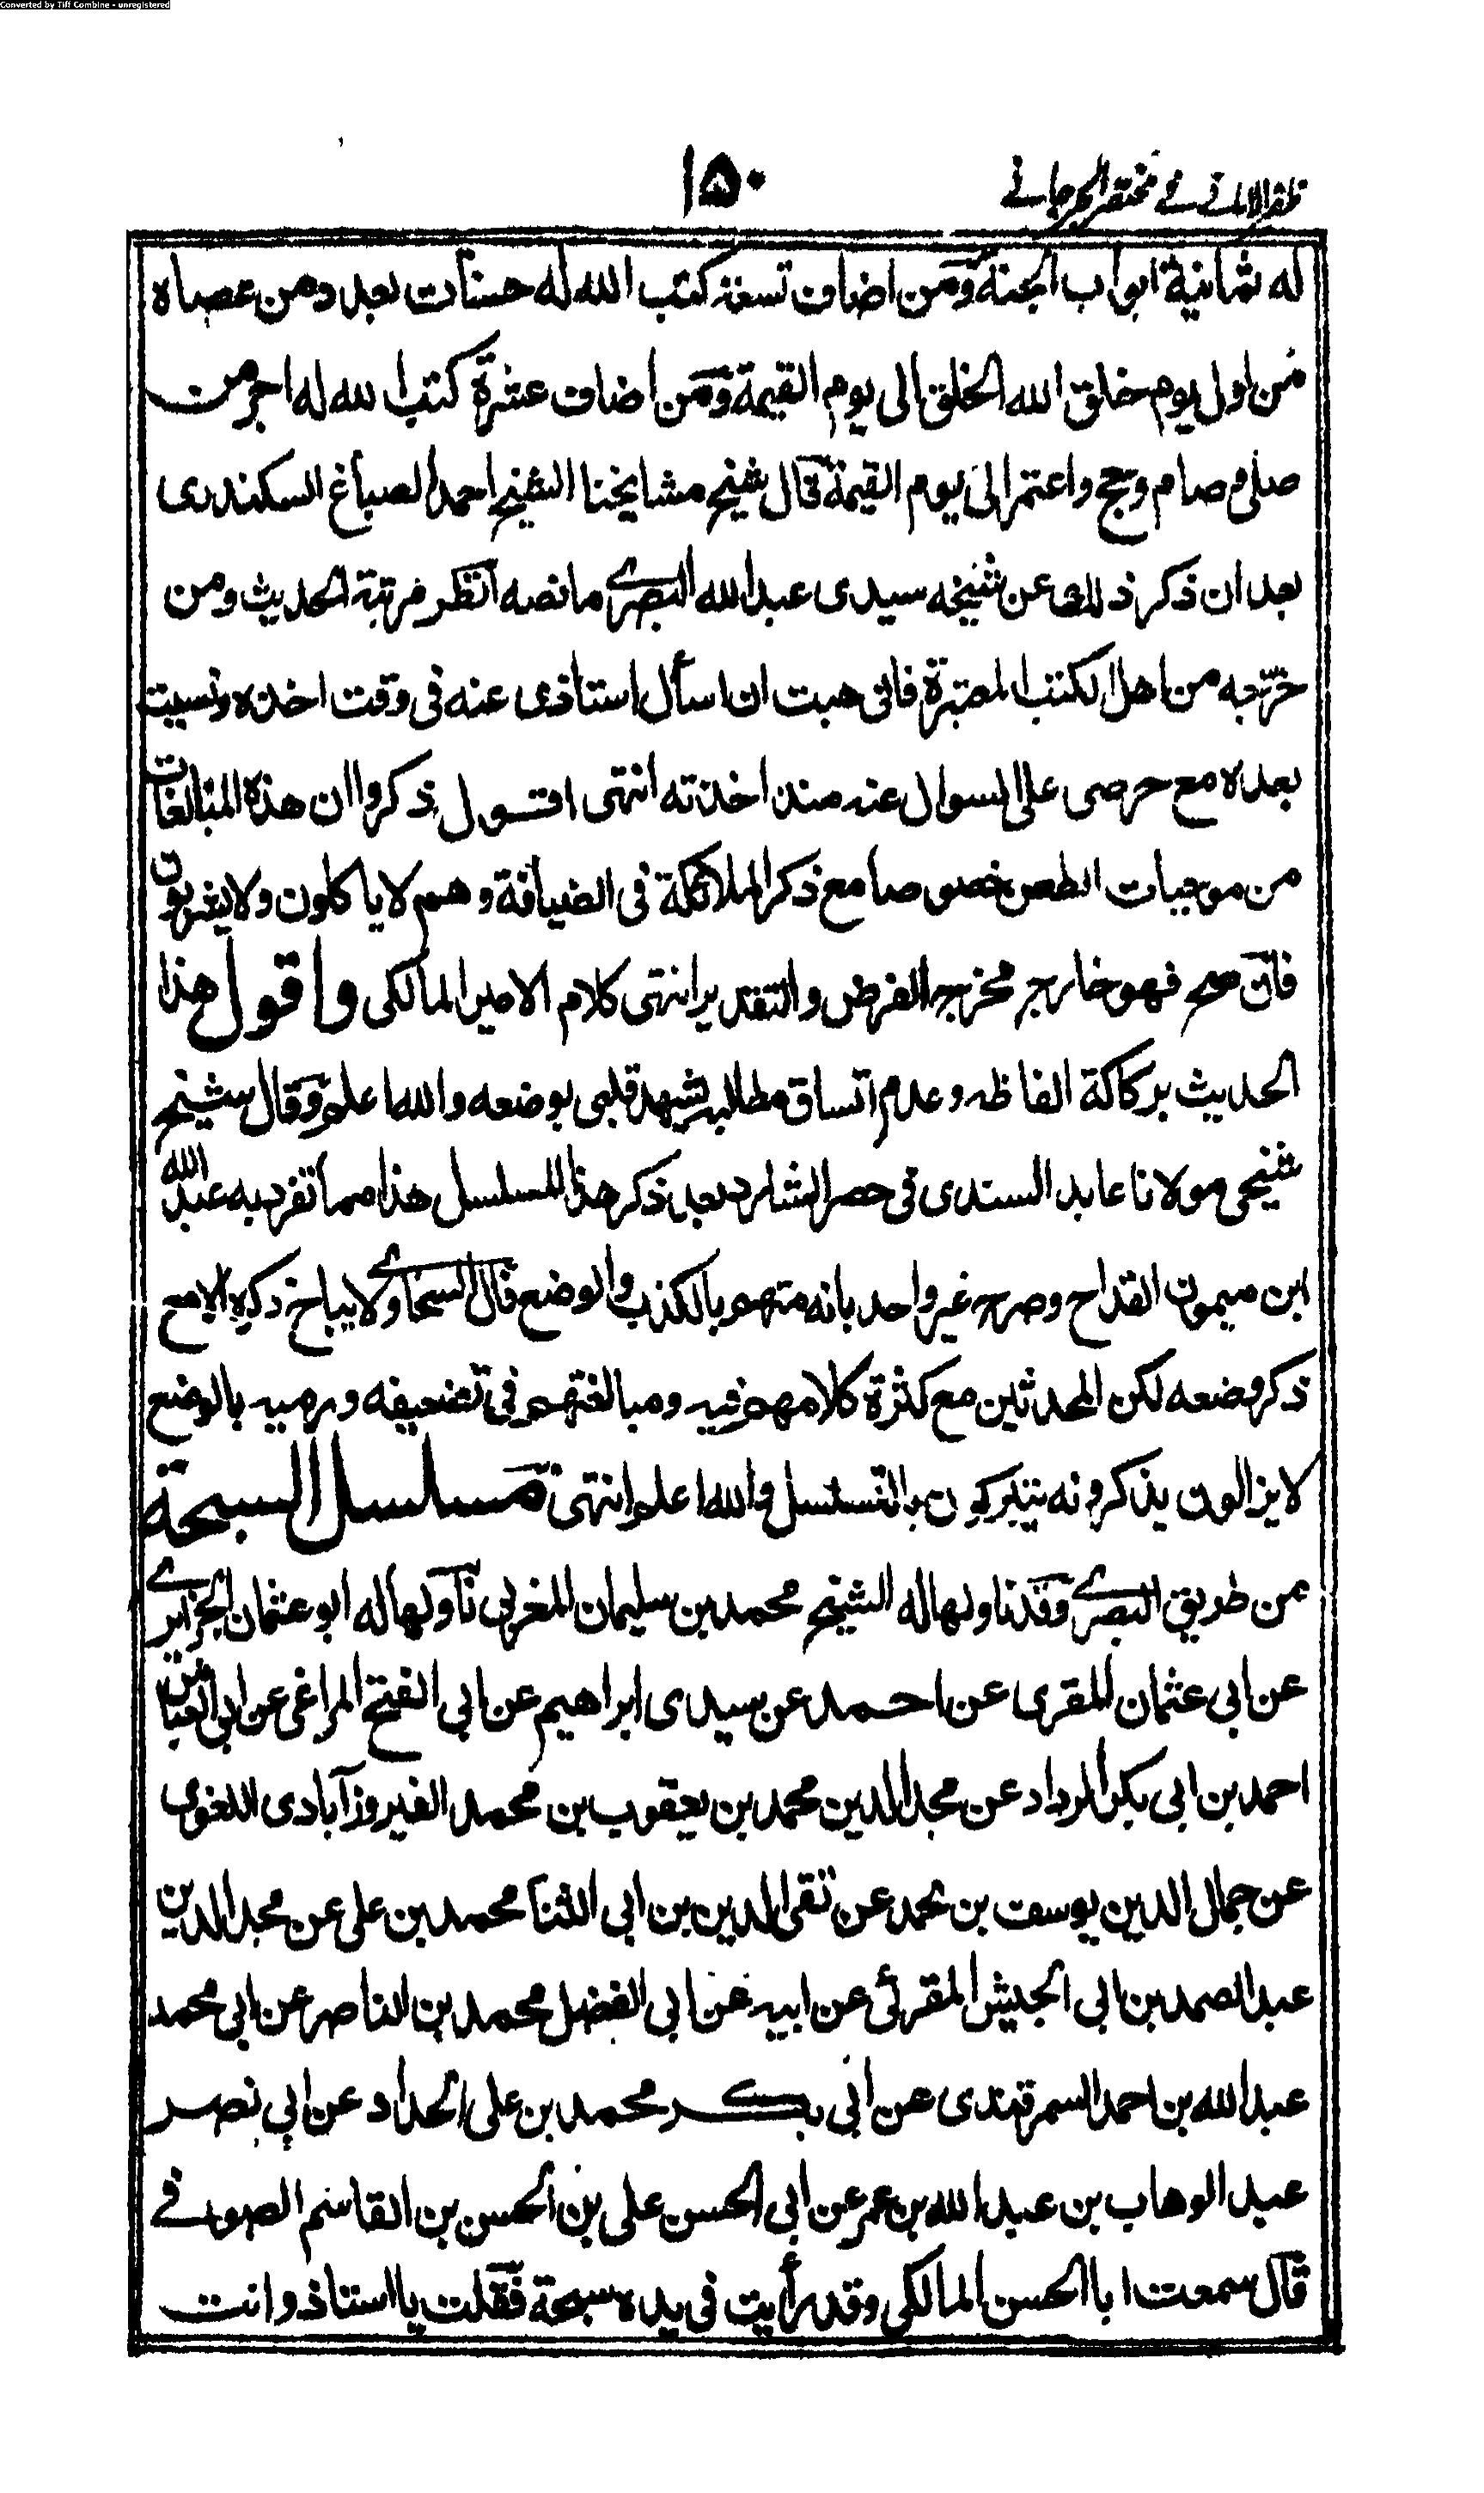 Converted by Tiff Combine - unregistered
ظفر الامانى فى مختصر الجرجانے
۱۵۰
له ثمانية ابواب الجنة ومن اضاف تسعة كتب الله له حسنات بعدد من عصاه
من اول يوم خلق الله الخلق الى يوم القيمة ومن اضاف عشرة كتب الله له اجر من
صلى وصام وحج واعتمر الى يوم القيمة قال شيخ مشايخنا الشيخ احمد الصباغ السكندرى
بعد ان ذكر ذلك عن شيخه سيدى عبد الله البصرے ما نصه انظر مرتبة الحديث ومن
خرّجه من اهل الكتب المعتبرة فانى هبت ان اسأل استاذى عنه فى وقت اخذه ونسيت
بعده مع حرصى على السوال عنه منذ اخذته انتهى اقول ذكروا ان هذه المبالغات
من موجبات الطعن خصوصا مع ذكر الملائكة فى الضيافة وهم لا ياكلون ولا يشربون
فان صح فهو خارج مخرج الفرض والتقدير انتهى كلام الامير المالكى واقول هذا
الحديث بركاكة الفاظه وعدم اتساق مطالبه يشهد قلبى بوضعه والله اعلم وقال شيخ
شيخى مولانا عابد السندى فى حصر الشارد بعد ذكر هذا المسلسل هذا مما تفرد به عبد الله
ابن ميمون القداح وصرح غير واحد بانه متهم بالكذب والوضع قال السخاوے لا يباح ذكره الا مع
ذكر وضعه لكن المحدثين مع كثرة كلامهم فيه ومبالغتهم فى تضعيفه ورميه بالوضع
لا يزالون يذكرونه يتبركون بالتسلسل والله اعلم انتهى مسلسل السبحة
من طريق البصرے فقد ناولها له الشيخ محمد بن سليمان المغربى ناولها له ابو عثمان الجزايرے
عن ابى عثمان المقرى عن احمد عن سيدى ابراهيم عن ابى الفتح المراغى عن ابى العباس
احمد بن ابى بكر الرداد عن مجد الدين محمد بن يعقوب بن محمد الفيروزآبادى اللغوى
عن جمال الدين يوسف بن محمد عن تقى الدين بن ابى الثنا محمد بن على عن مجد الدين
عبد الصمد بن ابى الجيش المقرئى عن ابيه عن ابى الفضل محمد بن الناصر عن ابى محمد
عبد الله بن احمد السمرقندى عن ابى بكر محمد بن على الحداد عن ابى نصر
عبد الوهاب بن عبد الله بن عمر عن ابى الحسن على بن الحسن بن القاسم الصوفے
قال سمعت ابا الحسن المالكى وقد رأيت فى يده سبحة فقلت يا استاذ وانت